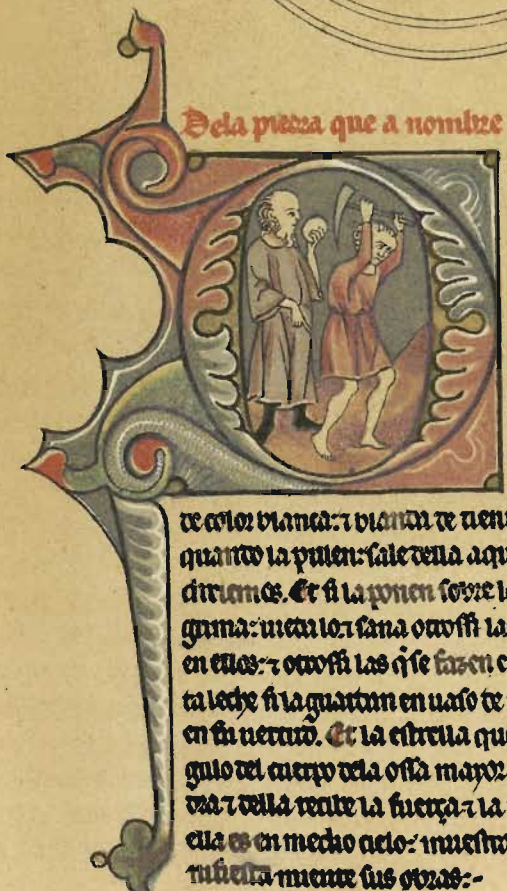 Dela piedra que a nombre
de color blanca: ⁊ blanda de
quando la pulen: sale della aqu
diziemos. Et si la ponen sobre l
grima: uieda lo ⁊ sana otrossi la
en ellos: ⁊ otrossi las q̄ se fazen
ta leche si la guardan en uaso de
en su uertud. Et la estrella que
gulo del cuerpo dela ossa mayor
dra ⁊ della recibe la fuerça ⁊ la
ella es en medio cielo: muestra
nifiesta miente sus obras:-